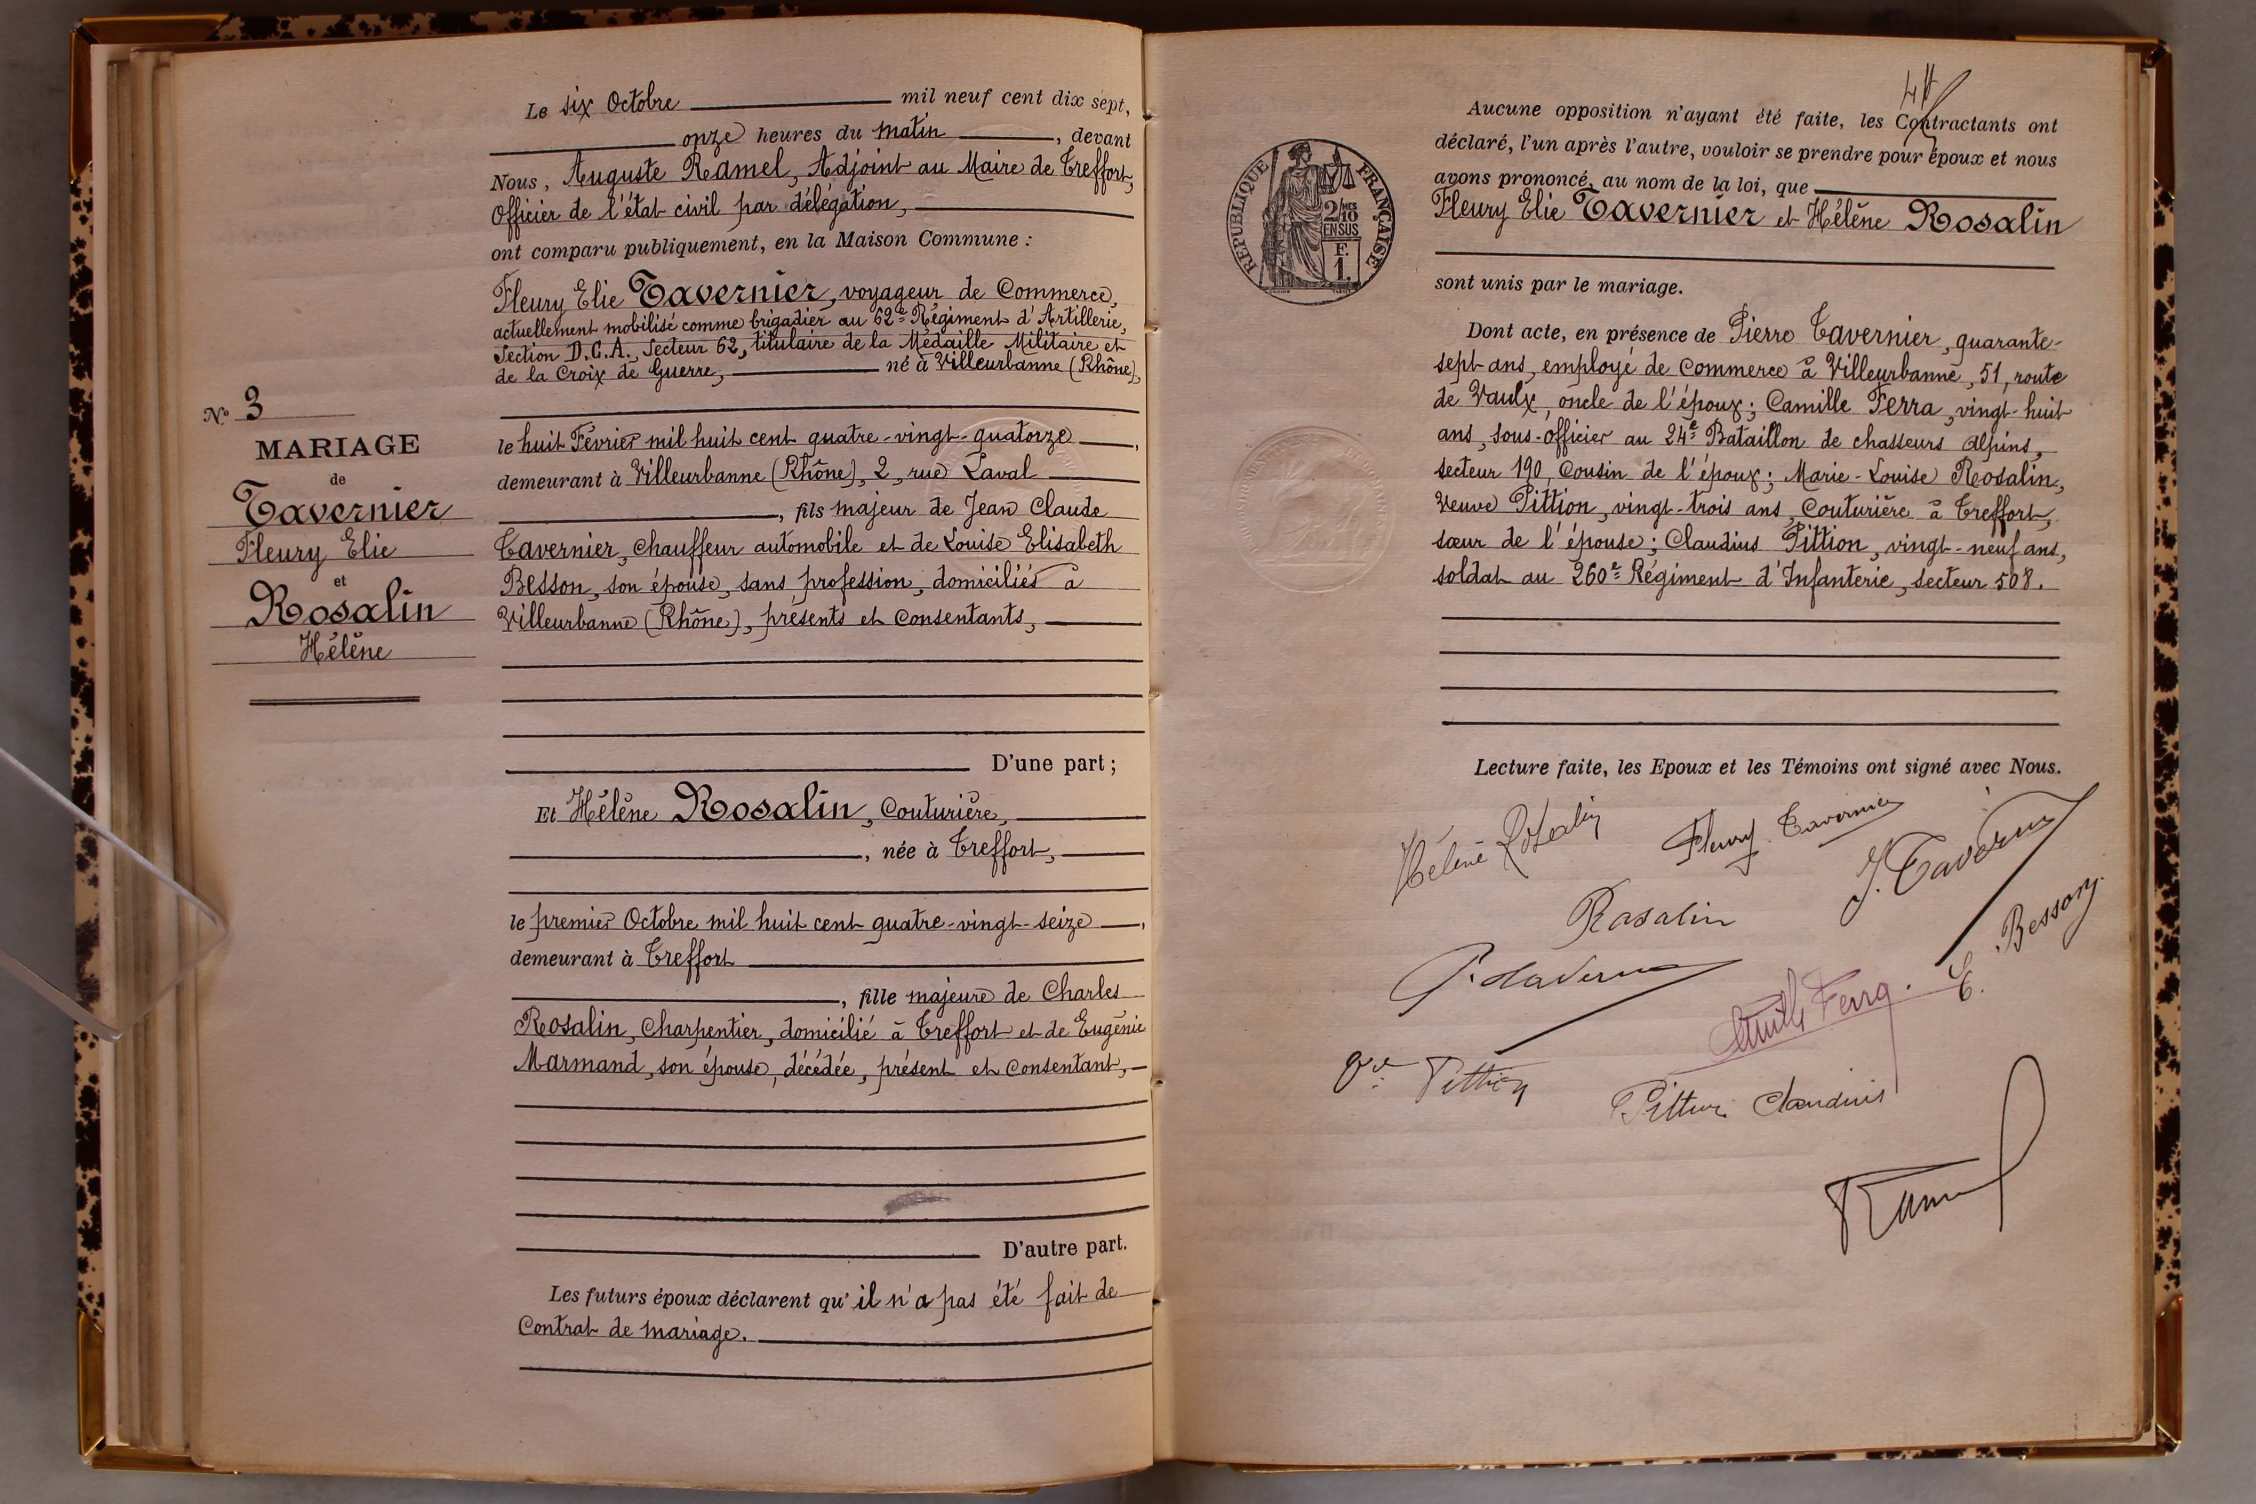 Le six Octobre mil neuf cent dix sept,
onze heures du matin, devant
Nous, Auguste Ramel, Adjoint au Maire de Treffort,
Officier de l'état civil par délégation,
ont comparu publiquement, en la Maison Commune :
Fleury Elie Tavernier, voyageur de Commerce,
actuellement mobilisé comme brigadier au 62e Régiment d'Artillerie,
Section D.C.A., Secteur 62, titulaire de la Médaille Militaire et
de la Croix de Guerre, né à Villeurbanne (Rhône),
le huit Février mil huit cent quatre-vingt-quatorze,
demeurant à Villeurbanne (Rhône), 2, rue Laval
, fils majeur de Jean Claude
Tavernier, chauffeur automobile et de Louise Elisabeth
Besson, son épouse, sans profession, domiciliés à
Villeurbanne (Rhône), présents et consentants,
D'une part ;
Et Hélène Rosalin, Couturière,
, née à Treffort,
le premier Octobre mil huit cent quatre-vingt-seize,
demeurant à Treffort
, fille majeure de Charles
Rosalin, Charpentier, domicilié à Treffort et de Eugénie
Marmand, son épouse, décédée, présent et consentant,
D'autre part.
Les futurs époux déclarent qu'il n'a pas été fait de
Contrat de mariage.
No 3
MARIAGE
de
Tavernier
Fleury Elie
et
Rosalin
Hélène
Aucune opposition n'ayant été faite, les Contractants ont
déclaré, l'un après l'autre, vouloir se prendre pour époux et nous
avons prononcé, au nom de la loi, que
Fleury Elie Tavernier et Hélène Rosalin
sont unis par le mariage.
Dont acte, en présence de Pierre Tavernier, quarante-
sept ans, employé de commerce à Villeurbanne, 51, route
de Vaulx, oncle de l'époux ; Camille Ferra, vingt-huit
ans, sous-officier au 24e Bataillon de chasseurs alpins,
secteur 190, cousin de l'époux ; Marie-Louise Rosalin,
Veuve Pittion, vingt-trois ans, Couturière à Treffort,
sœur de l'épouse ; Claudius Pittion, vingt-neuf ans,
soldat au 260e Régiment d'Infanterie, secteur 508.
Lecture faite, les Epoux et les Témoins ont signé avec Nous.
Hélène Rosalin
Fleury Tavernier
J. Tavernier
Rosalin
E. Besson
P. Tavernier
Ferra
Vve Pittion
Pittion Claudius
Ramel
RÉPUBLIQUE FRANÇAISE
2/10 MES
EN SUS
F.
1.